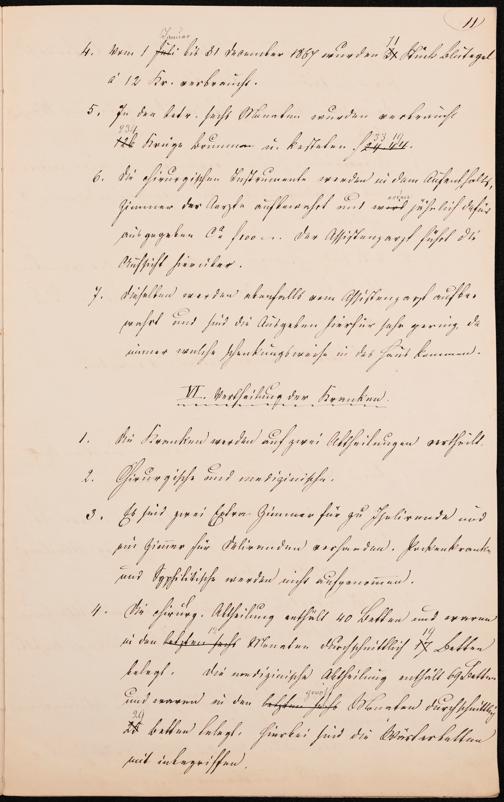 11
Januar
4. Vom 1 Juli bis 31 December 1867 wurden 71 Stück Blutegel
à 12 Kr. verbraucht.
5. In den letz. sechs Monaten wurden verbraucht
234
126 Krüge Brunnen u. kosteten f
6. Die chirurgischen Instrumente werden in dem Aufenthalts-
zimmer der Aerzte aufbewahrt und jährlich dafür
ausgegeben Ca f 100. Der Assistenzarzt führt die
Aufsicht hierüber.
7. Dieselben werden ebenfalls vom Assistenzarzt aufbe-
wahrt und sind die Ausgaben hierfür sehr gering, da
immer welche schenkungsweise in das Haus kommen.
VI. Vertheilung der Kranken.
1. Die Kranken werden auf zwei Abtheilungen vertheilt
2. Chirurgische und medizinische.
3. Es sind zwei Extra-Zimmer für zu Isolirende und
ein Zimmer für Delirenden vorhanden. Pockenkranke
und Syphilitische werden nicht aufgenommen.
4. Die chirurg. Abtheilung enthält 40 Betten und waren
in den letzten sechs Monaten durchschnittlich 19 Betten
belegt. Die medizinische Abtheilung enthält 69 Betten
und waren in den letzten sechs Monaten durchschnittlich
29 Betten belegt. Hierbei sind die Wärterbetten
mit inbegriffen.